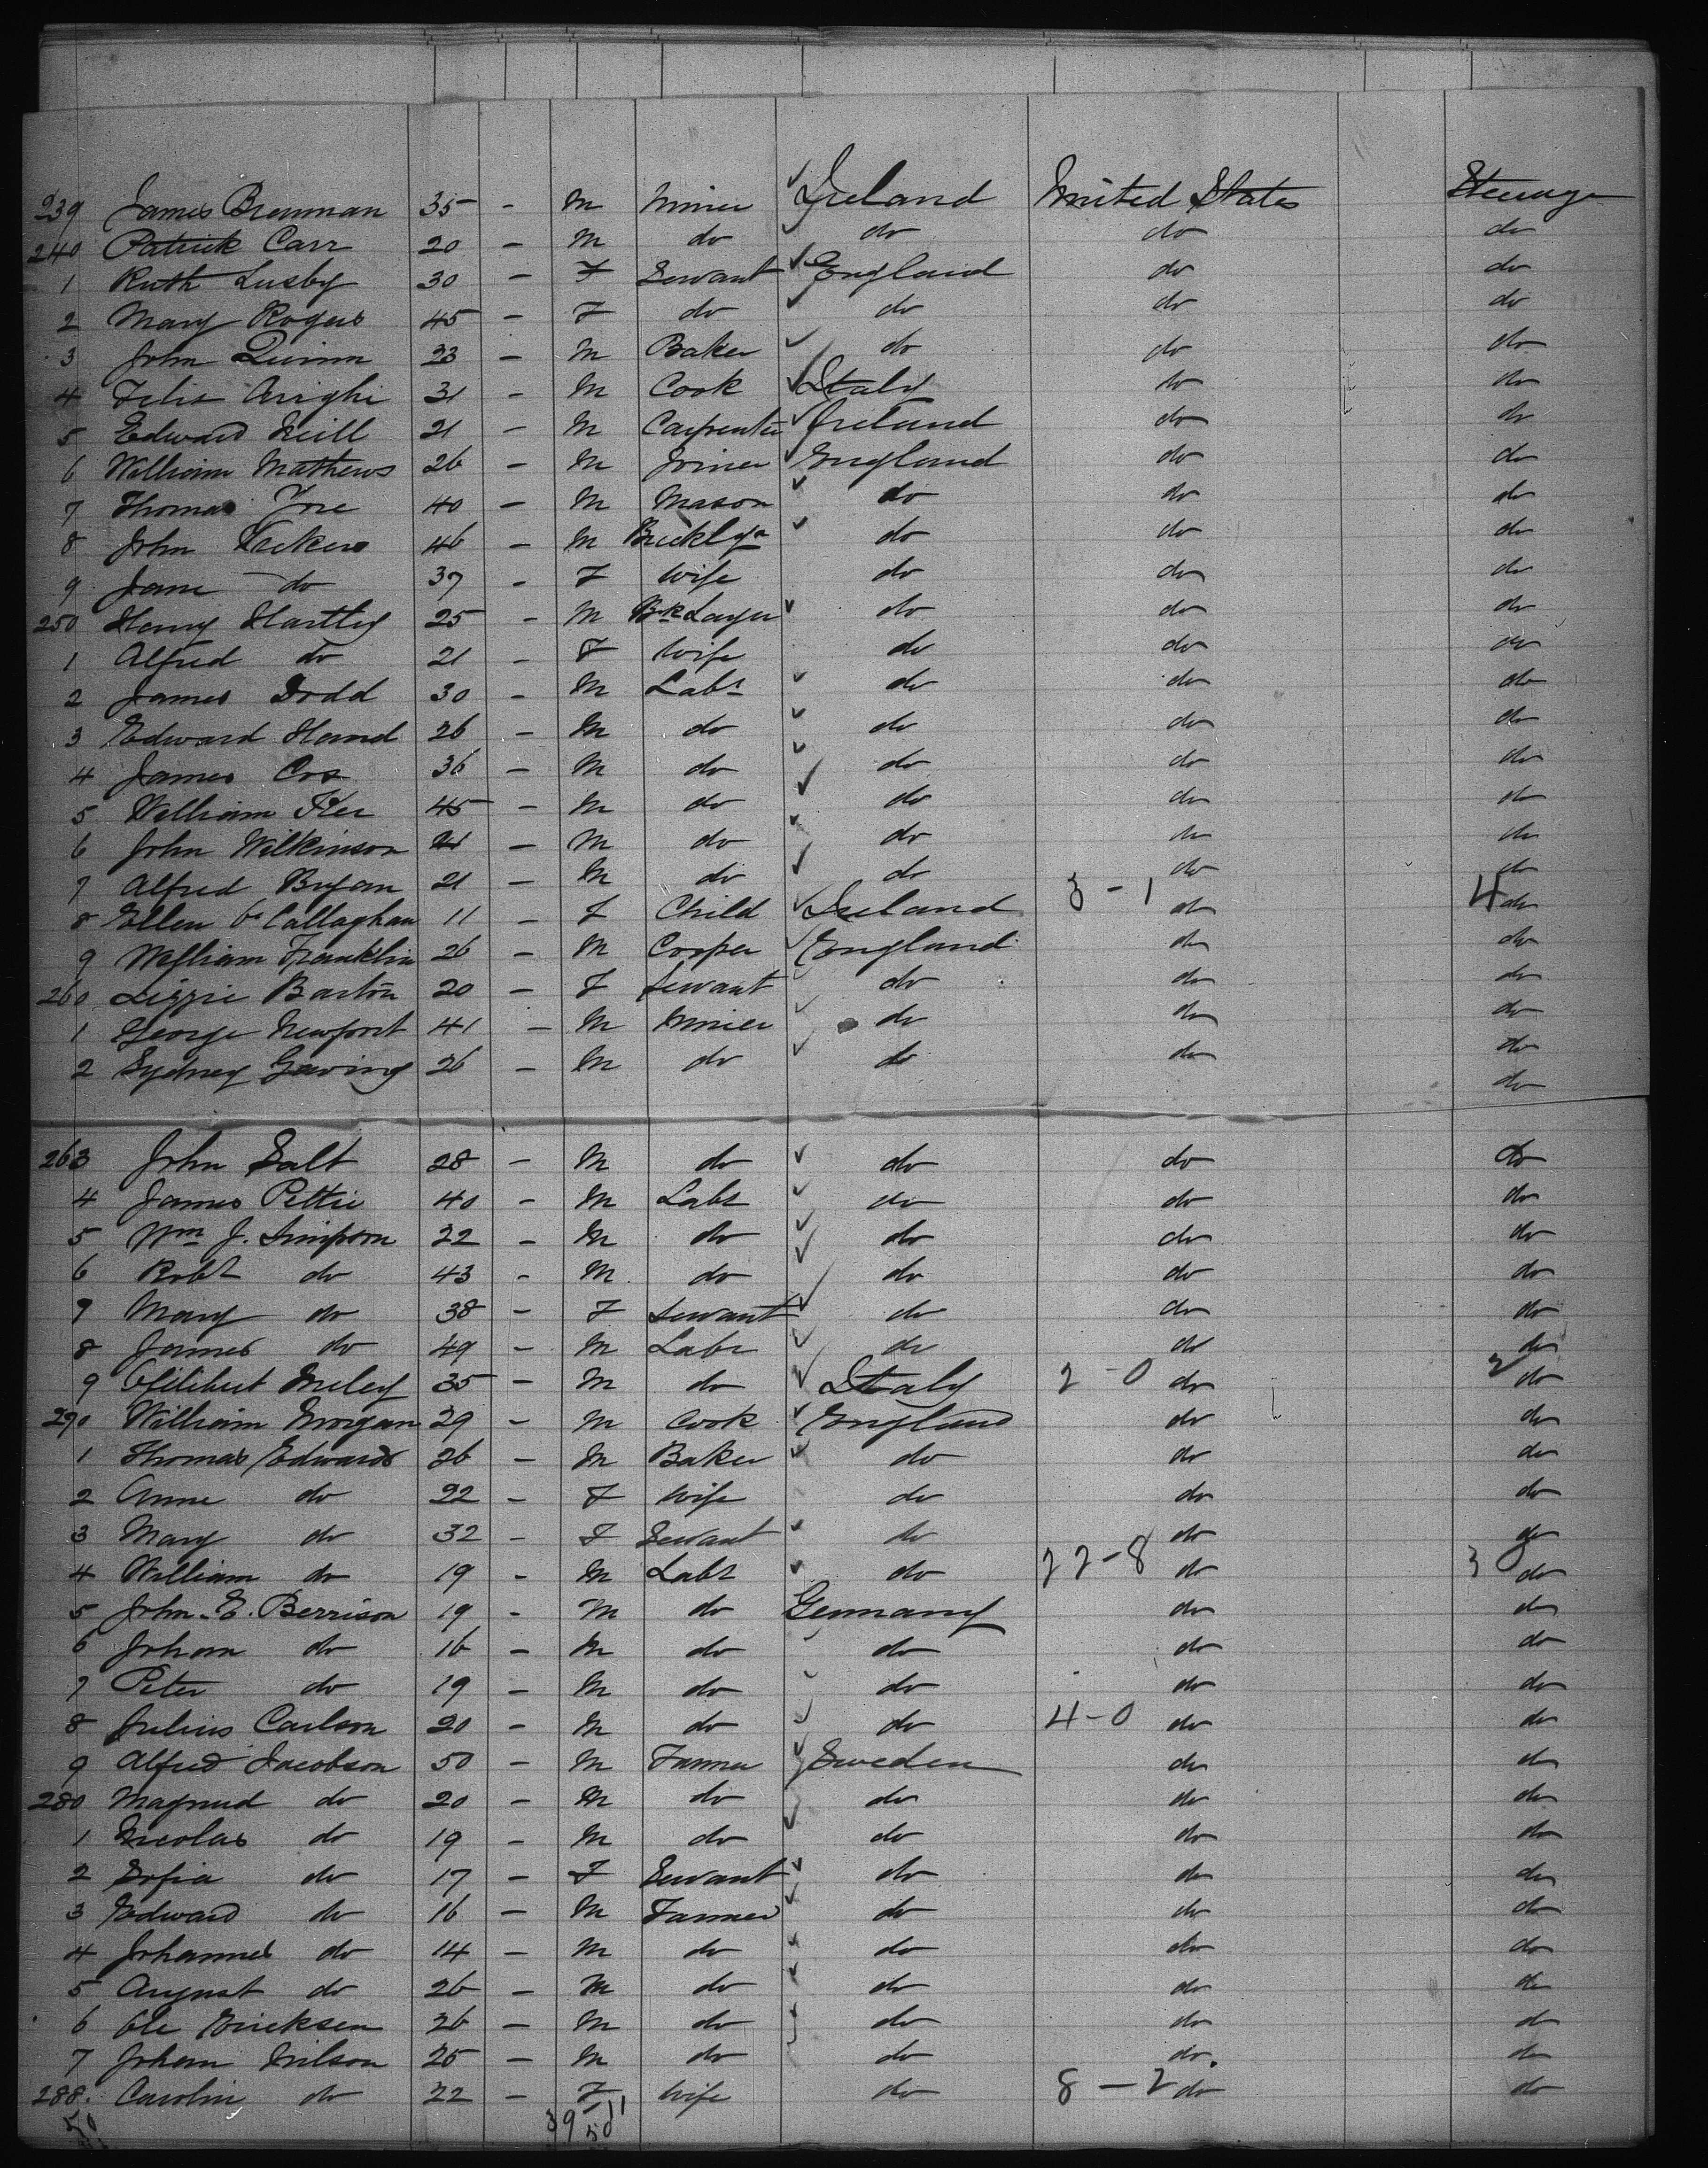 239 James Brennan 35 - M Miner ✓ Ireland United States Steerage
240 Patrick Carr 20 - M do ✓ do do do
1 Ruth Lusby 30 - F Servant ✓ England do do
2 Mary Rogers 45 - F do ✓ do do do
3 John Quinn 23 - M Baker ✓ do do do
4 Arrighi 31 - M Cook ✓ Italy do do
5 Edward Neill 21 - M Carpenter ✓ Ireland do do
6 William Mathews 26 - M Joiner ✓ England do do
7 Thomas 40 - M Mason ✓ do do do
8 John Vickers 46 - M Bricklyr ✓ do do do
9 Jane do 37 - F Wife do do do
250 Henry Hartley 25 - M Bk Layer ✓ do do do
1 Alfred do 21 - F Wife do do do
2 James Dodd 30 - M Labr ✓ do do do
3 Edward Hand 26 - M do ✓ do do do
4 James Cox 36 - M do ✓ do do do
5 William 45 - M do ✓ do do do
6 John Wilkinson 21 - M do ✓ do do do
7 Alfred Bryan 21 - M do ✓ do do do
8 Ellen O'Callaghan 11 - F Child ✓ Ireland 3 - 1 do 4 do
9 William Franklin 26 - M Cooper ✓ England do do
260 Lizzie Barton 20 - F Servant ✓ do do do
1 George Newport 41 - M Miner ✓ do do do
2 Sydney 26 - M do ✓ do do do
do
263 John Salt 28 - M do ✓ do do do
4 James Pettie 40 - M Labr ✓ do do do
5 Wm J. Simpson 22 - M do ✓ do do do
6 Robt do 43 - M do ✓ do do do
7 Mary do 38 - F Servant ✓ do do do
8 James do 49 - M Labr ✓ do do do
9 35 - M do ✓ Italy 2 - 0 do 2 do
270 William Morgan 29 - M Cook ✓ England do do
1 Thomas Edwards 26 - M Baker ✓ do do do
2 Anne do 22 - F Wife do do do
3 Mary do 32 - F Servant ✓ do do do
4 William do 19 - M Labr ✓ do 22 - 8 do 30 do
5 John. E. Berrison 19 - M do Germany do do
6 Johan do 16 - M do ✓ do do do
7 Peter do 19 - M do ✓ do do do
8 Julius Carlson 20 - M do ✓ do 4 - 0 do do
9 Alfred Jacobson 50 - M Farmer ✓ Sweden do do
280 Magnud do 20 - M do ✓ do do do
1 Nicolas do 19 - M do ✓ do do do
2 Sofia do 17 - F Servant ✓ do do do
3 Edward do 16 - M Farmer ✓ do do do
4 Johannes do 14 - M do ✓ do do do
5 August do 26 - M do ✓ do do do
6 Ole Ericksen 26 - M do ✓ do do do
7 Johan Nilson 25 - M do ✓ do do do
288. Carolin do 22 - F Wife do 8 - 2 do do
50 39 11
50